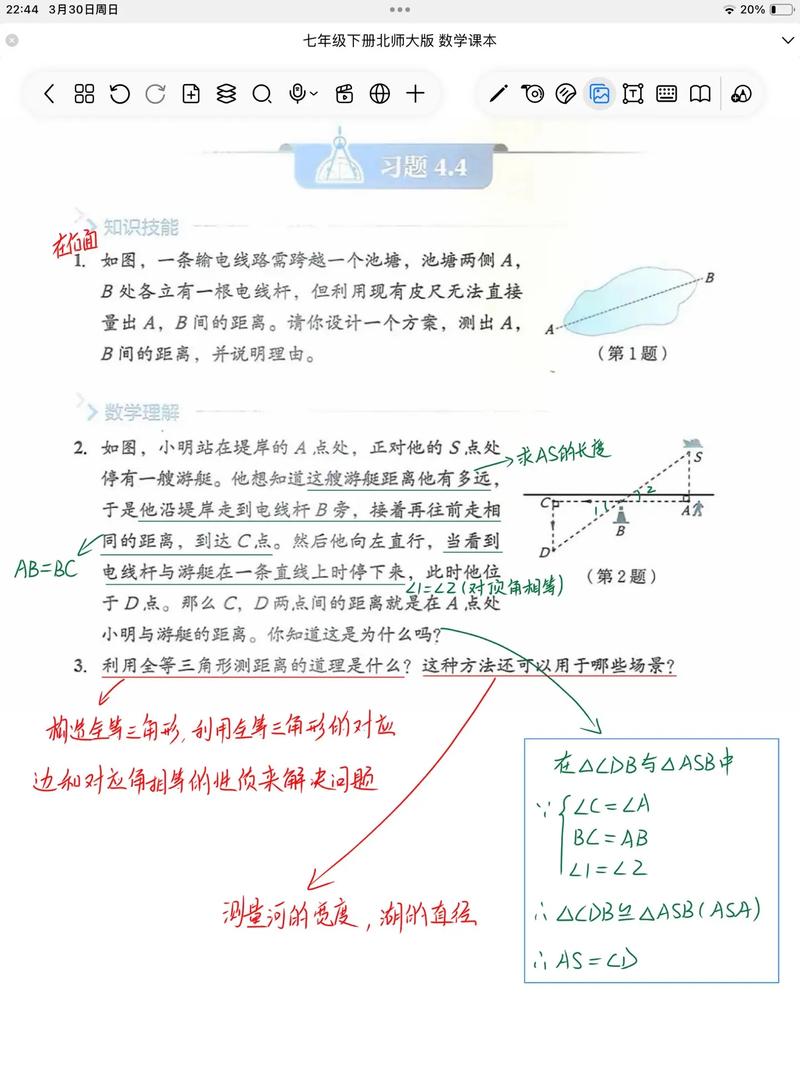 22:44 3月30日周日
20%
七年级下册北师大版 数学课本
习题 4.4
知识技能
在右面
1. 如图，一条输电线路需跨越一个池塘，池塘两侧 A，
B 处各立有一根电线杆，但利用现有皮尺无法直接
量出 A，B 间的距离。请你设计一个方案，测出 A，
B 间的距离，并说明理由。
A
B
（第1题）
数学理解
2. 如图，小明站在堤岸的 A 点处，正对他的 S 点处
停有一艘游艇。他想知道这艘游艇距离他有多远，
求AS的长度
于是他沿堤岸走到电线杆 B 旁，接着再往前走相
同的距离，到达 C 点。然后他向左直行，当看到
AB=BC
电线杆与游艇在一条直线上时停下来，此时他位
∠1=∠2(对顶角相等)
于 D 点。那么 C，D 两点间的距离就是在 A 点处
小明与游艇的距离。你知道这是为什么吗？
S
C
1
2
A
B
D
（第2题）
3. 利用全等三角形测距离的道理是什么？这种方法还可以用于哪些场景？
构造全等三角形,利用全等三角形的对应
边和对应角相等的性质来解决问题
测量河的宽度,湖的直径
在△CDB与△ASB中
∵ ∠C=∠A
BC=AB
∠1=∠2
∴△CDB≌△ASB(ASA)
∴AS=CD